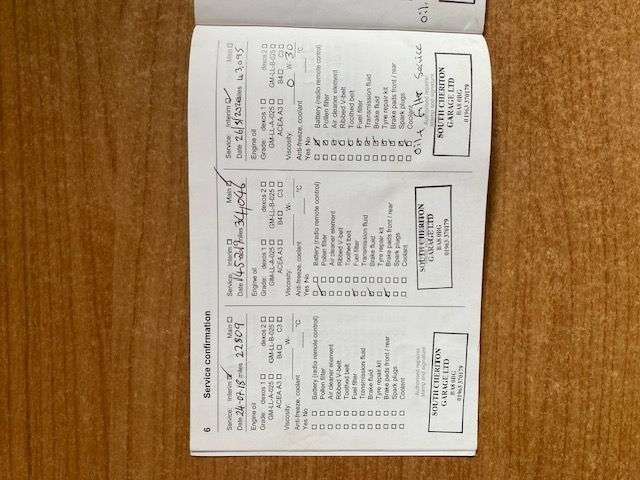 6 Service confirmation
Service: Interim ☑ Main ☐
Date 24-07-18 miles 22809
Engine oil
Grade: dexos 1 ☐ dexos 2 ☐
GM-LL-A-025 ☐ GM-LL-B-025 ☐
ACEA A3 ☐ B4 ☐ C3 ☐
Viscosity: W-
Anti-freeze, coolant °C
Yes No
☐ ☐ Battery (radio remote control)
☐ ☐ Pollen filter
☐ ☐ Air cleaner element
☐ ☐ Ribbed V-belt
☐ ☐ Toothed belt
☐ ☐ Fuel filter
☐ ☐ Transmission fluid
☐ ☐ Brake fluid
☐ ☐ Tyre repair kit
☐ ☐ Brake pads front / rear
☐ ☐ Spark plugs
☐ ☐ Coolant
Authorised repairers
stamp and signature
SOUTH CHERITON
GARAGE LTD
BA8 0BG
01963 370179
Service: Interim ☐ Main ☑
Date 14-5-19 miles 34,046
Engine oil
Grade: dexos 1 ☐ dexos 2 ☐
GM-LL-A-025 ☐ GM-LL-B-025 ☐
ACEA A3 ☐ B4 ☐ C3 ☐
Viscosity: W-
Anti-freeze, coolant °C
Yes No
Battery (radio remote control)
Pollen filter
Air cleaner element
Ribbed V-belt
Toothed belt
Fuel filter
Transmission fluid
Brake fluid
Tyre repair kit
Brake pads front / rear
Spark plugs
Coolant
SOUTH CHERITON
GARAGE LTD
BA8 0BG
01963 370179
Service: Interim ☑ Main ☐
miles 43,095
Engine oil
Grade: dexos 1 ☐ dexos 2 ☐
GM-LL-A-025 ☐ GM-LL-B-025 ☐
ACEA A3 ☐ B4 ☐ C3 ☐
Viscosity: 0 W- 30
Anti-freeze, coolant °C
Yes No
Battery (radio remote control)
Pollen filter
Air cleaner element
Ribbed V-belt
Toothed belt
Fuel filter
Transmission fluid
Brake fluid
Tyre repair kit
Brake pads front / rear
Spark plugs
Coolant
Oil & Filter Service
SOUTH CHERITON
GARAGE LTD
BA8 0BG
01963 370179
Oil